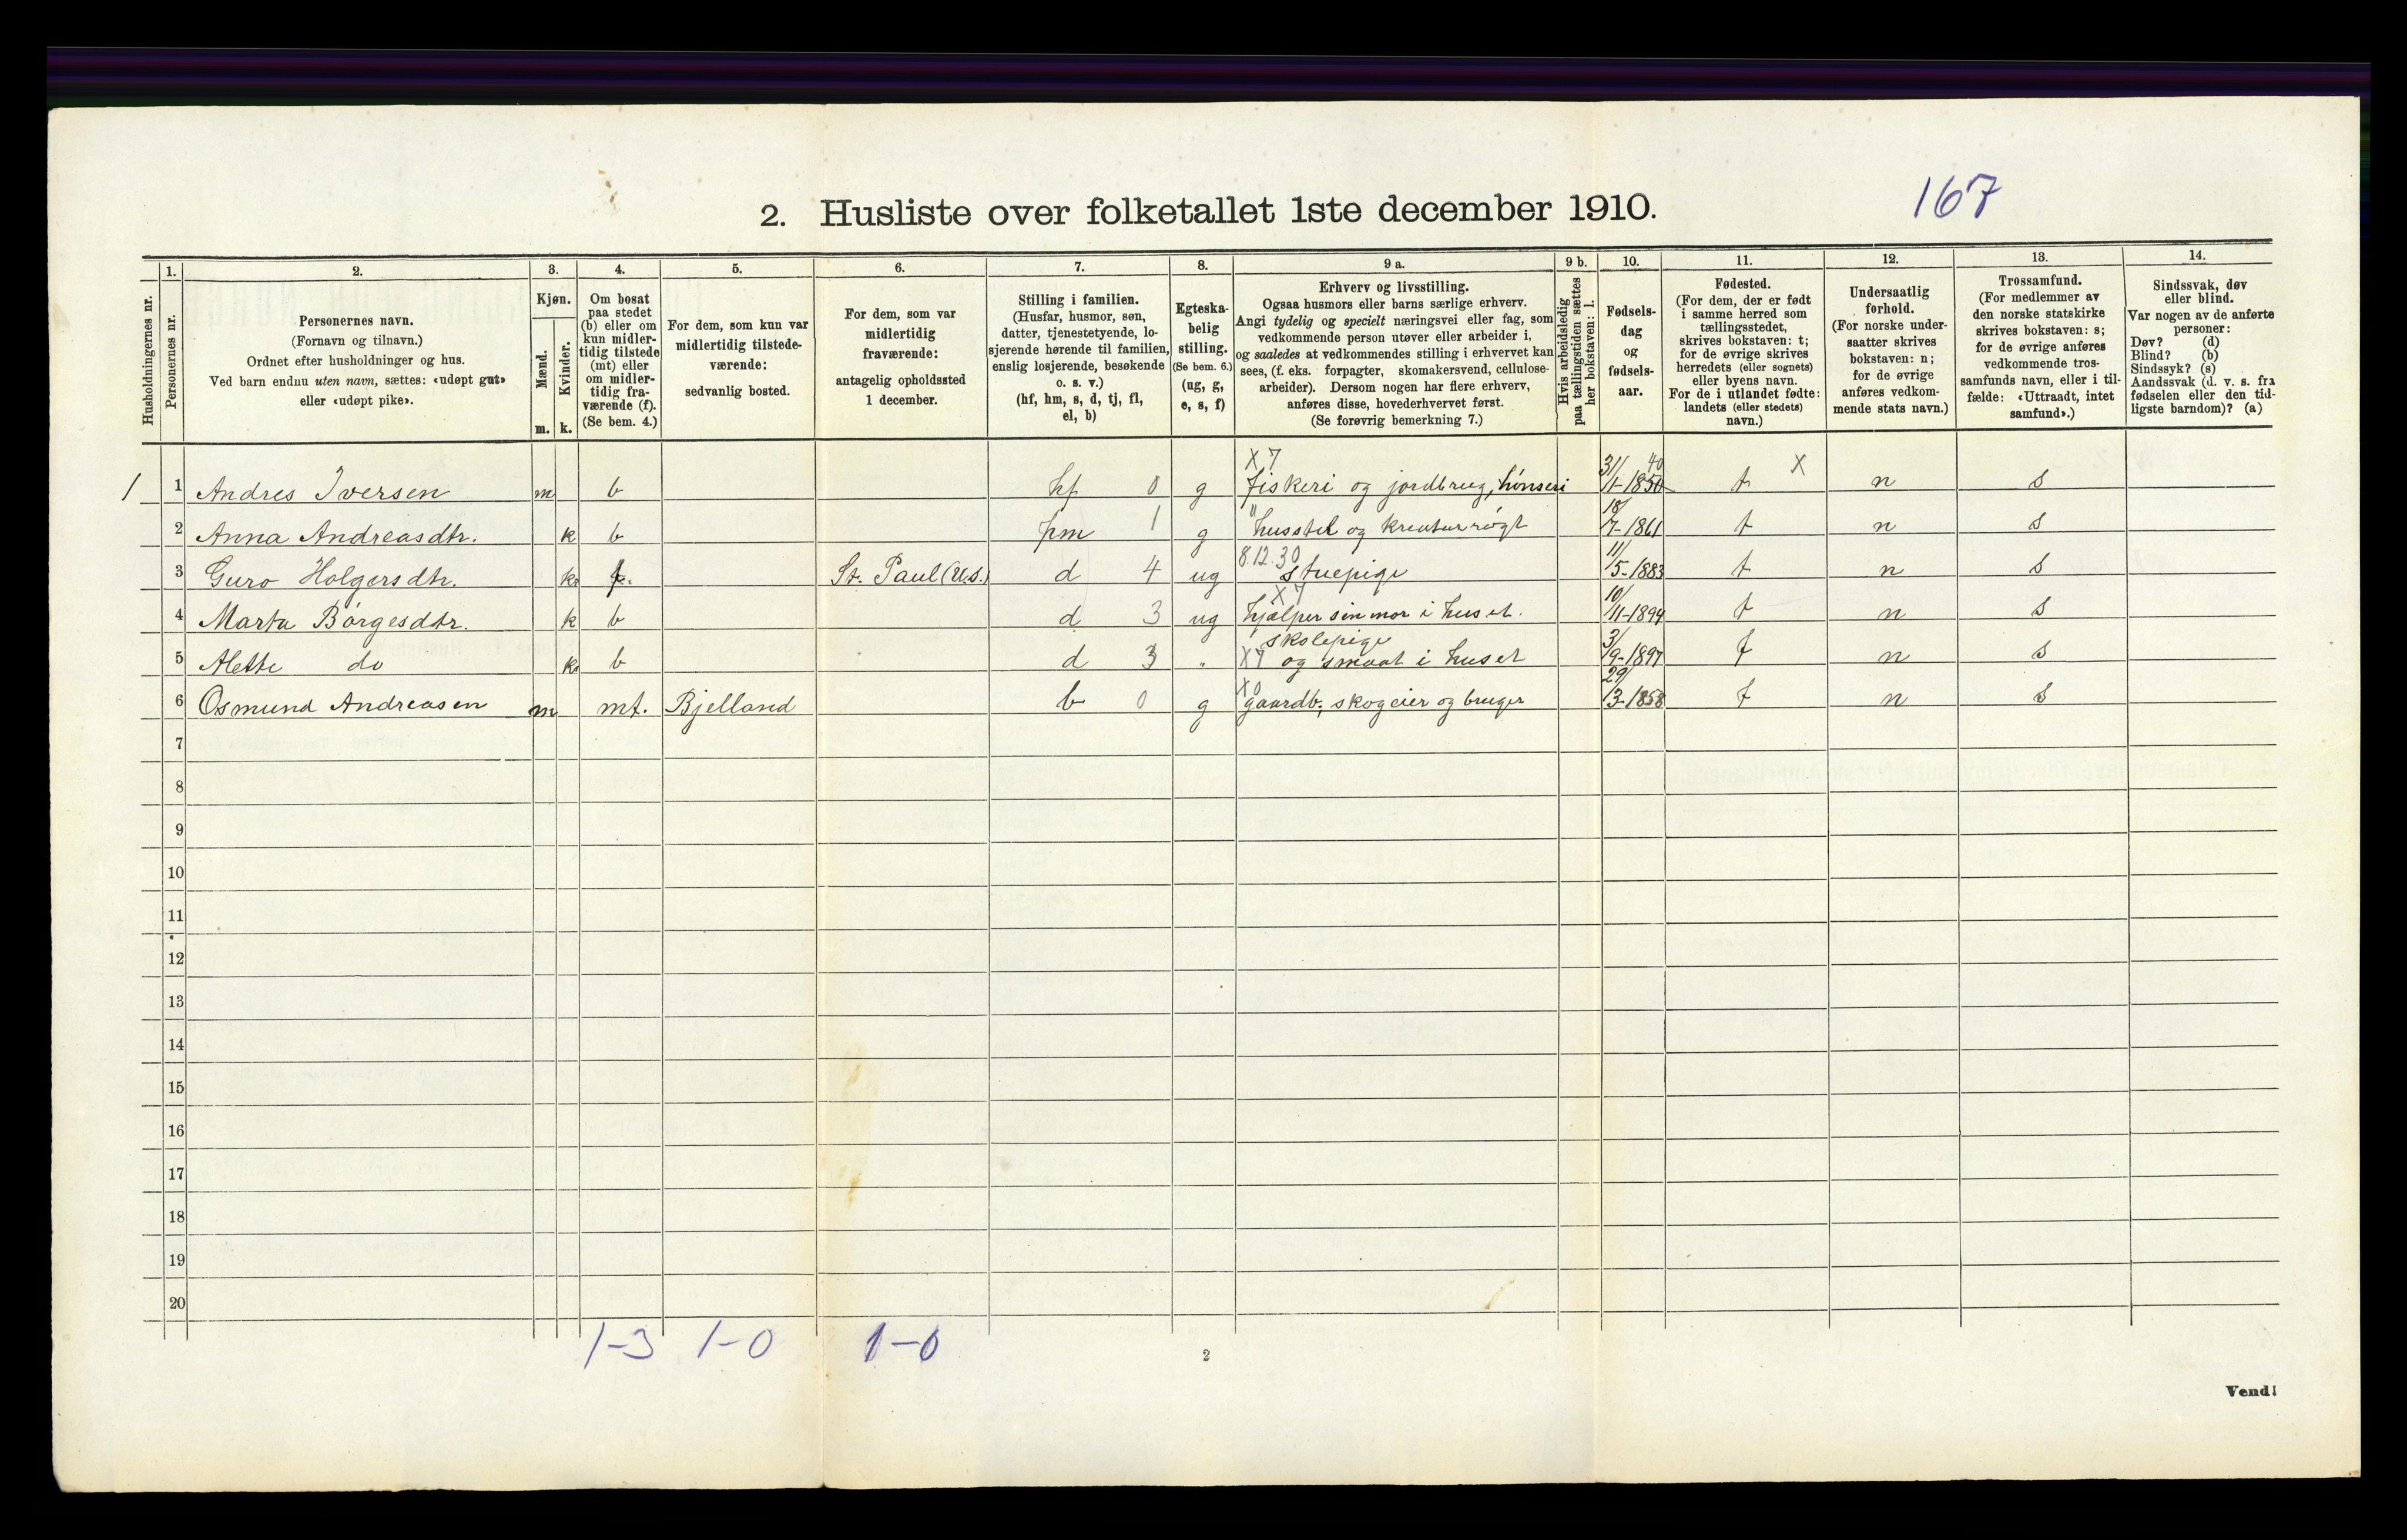 167
2. Husliste over folketallet 1ste december 1910.
Husholdningernes nr.
1.
Personernes nr.
2.
Personernes navn.
(Fornavn og tilnavn.)
Ordnet efter husholdninger og hus.
Ved barn endnu uten navn, sættes: «udøpt gut»
eller «udøpt pike».
3.
Kjøn.
Mænd.
Kvinder.
m. k.
4.
Om bosat
paa stedet
(b) eller om
kun midler-
tidig tilstede
(mt) eller
om midler-
tidig fra-
værende (f).
(Se bem. 4.)
5.
For dem, som kun var
midlertidig tilstede-
værende:
sedvanlig bosted.
6.
For dem, som var
midlertidig
fraværende:
antagelig opholdssted
1 december.
7.
Stilling i familien.
(Husfar, husmor, søn,
datter, tjenestetyende, lo-
sjerende hørende til familien,
enslig losjerende, besøkende
o. s. v.)
(hf, hm, s, d, tj, fl,
el, b)
8.
Egteska-
belig
stilling.
(Se bem. 6.)
(ug, g,
e, s, f)
9 a.
Erhverv og livsstilling.
Ogsaa husmors eller barns særlige erhverv.
Angi tydelig og specielt næringsvei eller fag, som
vedkommende person utøver eller arbeider i,
og saaledes at vedkommendes stilling i erhvervet kan
sees, (f. eks. forpagter, skomakersvend, cellulose-
arbeider). Dersom nogen har flere erhverv,
anføres disse, hovederhvervet først.
(Se forøvrig bemerkning 7.)
9 b.
Hvis arbeidsledig
paa tællingstiden sættes
her bokstaven: l.
10.
Fødsels-
dag
og
fødsels-
aar.
11.
Fødested.
(For dem, der er født
i samme herred som
tællingsstedet,
skrives bokstaven: t;
for de øvrige skrives
herredets (eller sognets)
eller byens navn.
For de i utlandet fødte:
landets (eller stedets)
navn.)
12.
Undersaatlig
forhold.
(For norske under-
saatter skrives
bokstaven: n;
for de øvrige
anføres vedkom-
mende stats navn.)
13.
Trossamfund.
(For medlemmer av
den norske statskirke
skrives bokstaven: s;
for de øvrige anføres
vedkommende tros-
samfunds navn, eller i til-
fælde: «Uttraadt, intet
samfund».)
14.
Sindssvak, døv
eller blind.
Var nogen av de anførte
personer:
Døv? (d)
Blind? (b)
Sindssyk? (s)
Aandssvak (d. v. s. fra
fødselen eller den tid-
ligste barndom)? (a)
X 7 31/ 40 X
1 1 Andres Iversen m b hf 0 g fiskeri og jordbrug, hønseri 1-1850 t n s
18/
2 Anna Andreasdtr. k b hm 1 g " husstel og kreaturrøgt 7-1861 t n s
8.12.30 11/
3 Guro Holgersdtr. k f. St. Paul (U.S.) d 4 ug stuepige 5-1883 t n s
X 7 10/
4 Marta Børgesdtr. k b d 3 ug hjælper sin mor i huset. 11-1894 t n s
skolepige 3/
5 Alette do k b d 3 " X 7 og smaat i huset 9-1897 t n s
X 0 29/
6 Osmund Andreasen m mt. Bjelland b 0 g gaardb., skogeier og bruger 3-1858 t n s
7
8
9
10
11
12
13
14
15
16
17
18
19
20
1-3 1-0 1-0
2
Vend!